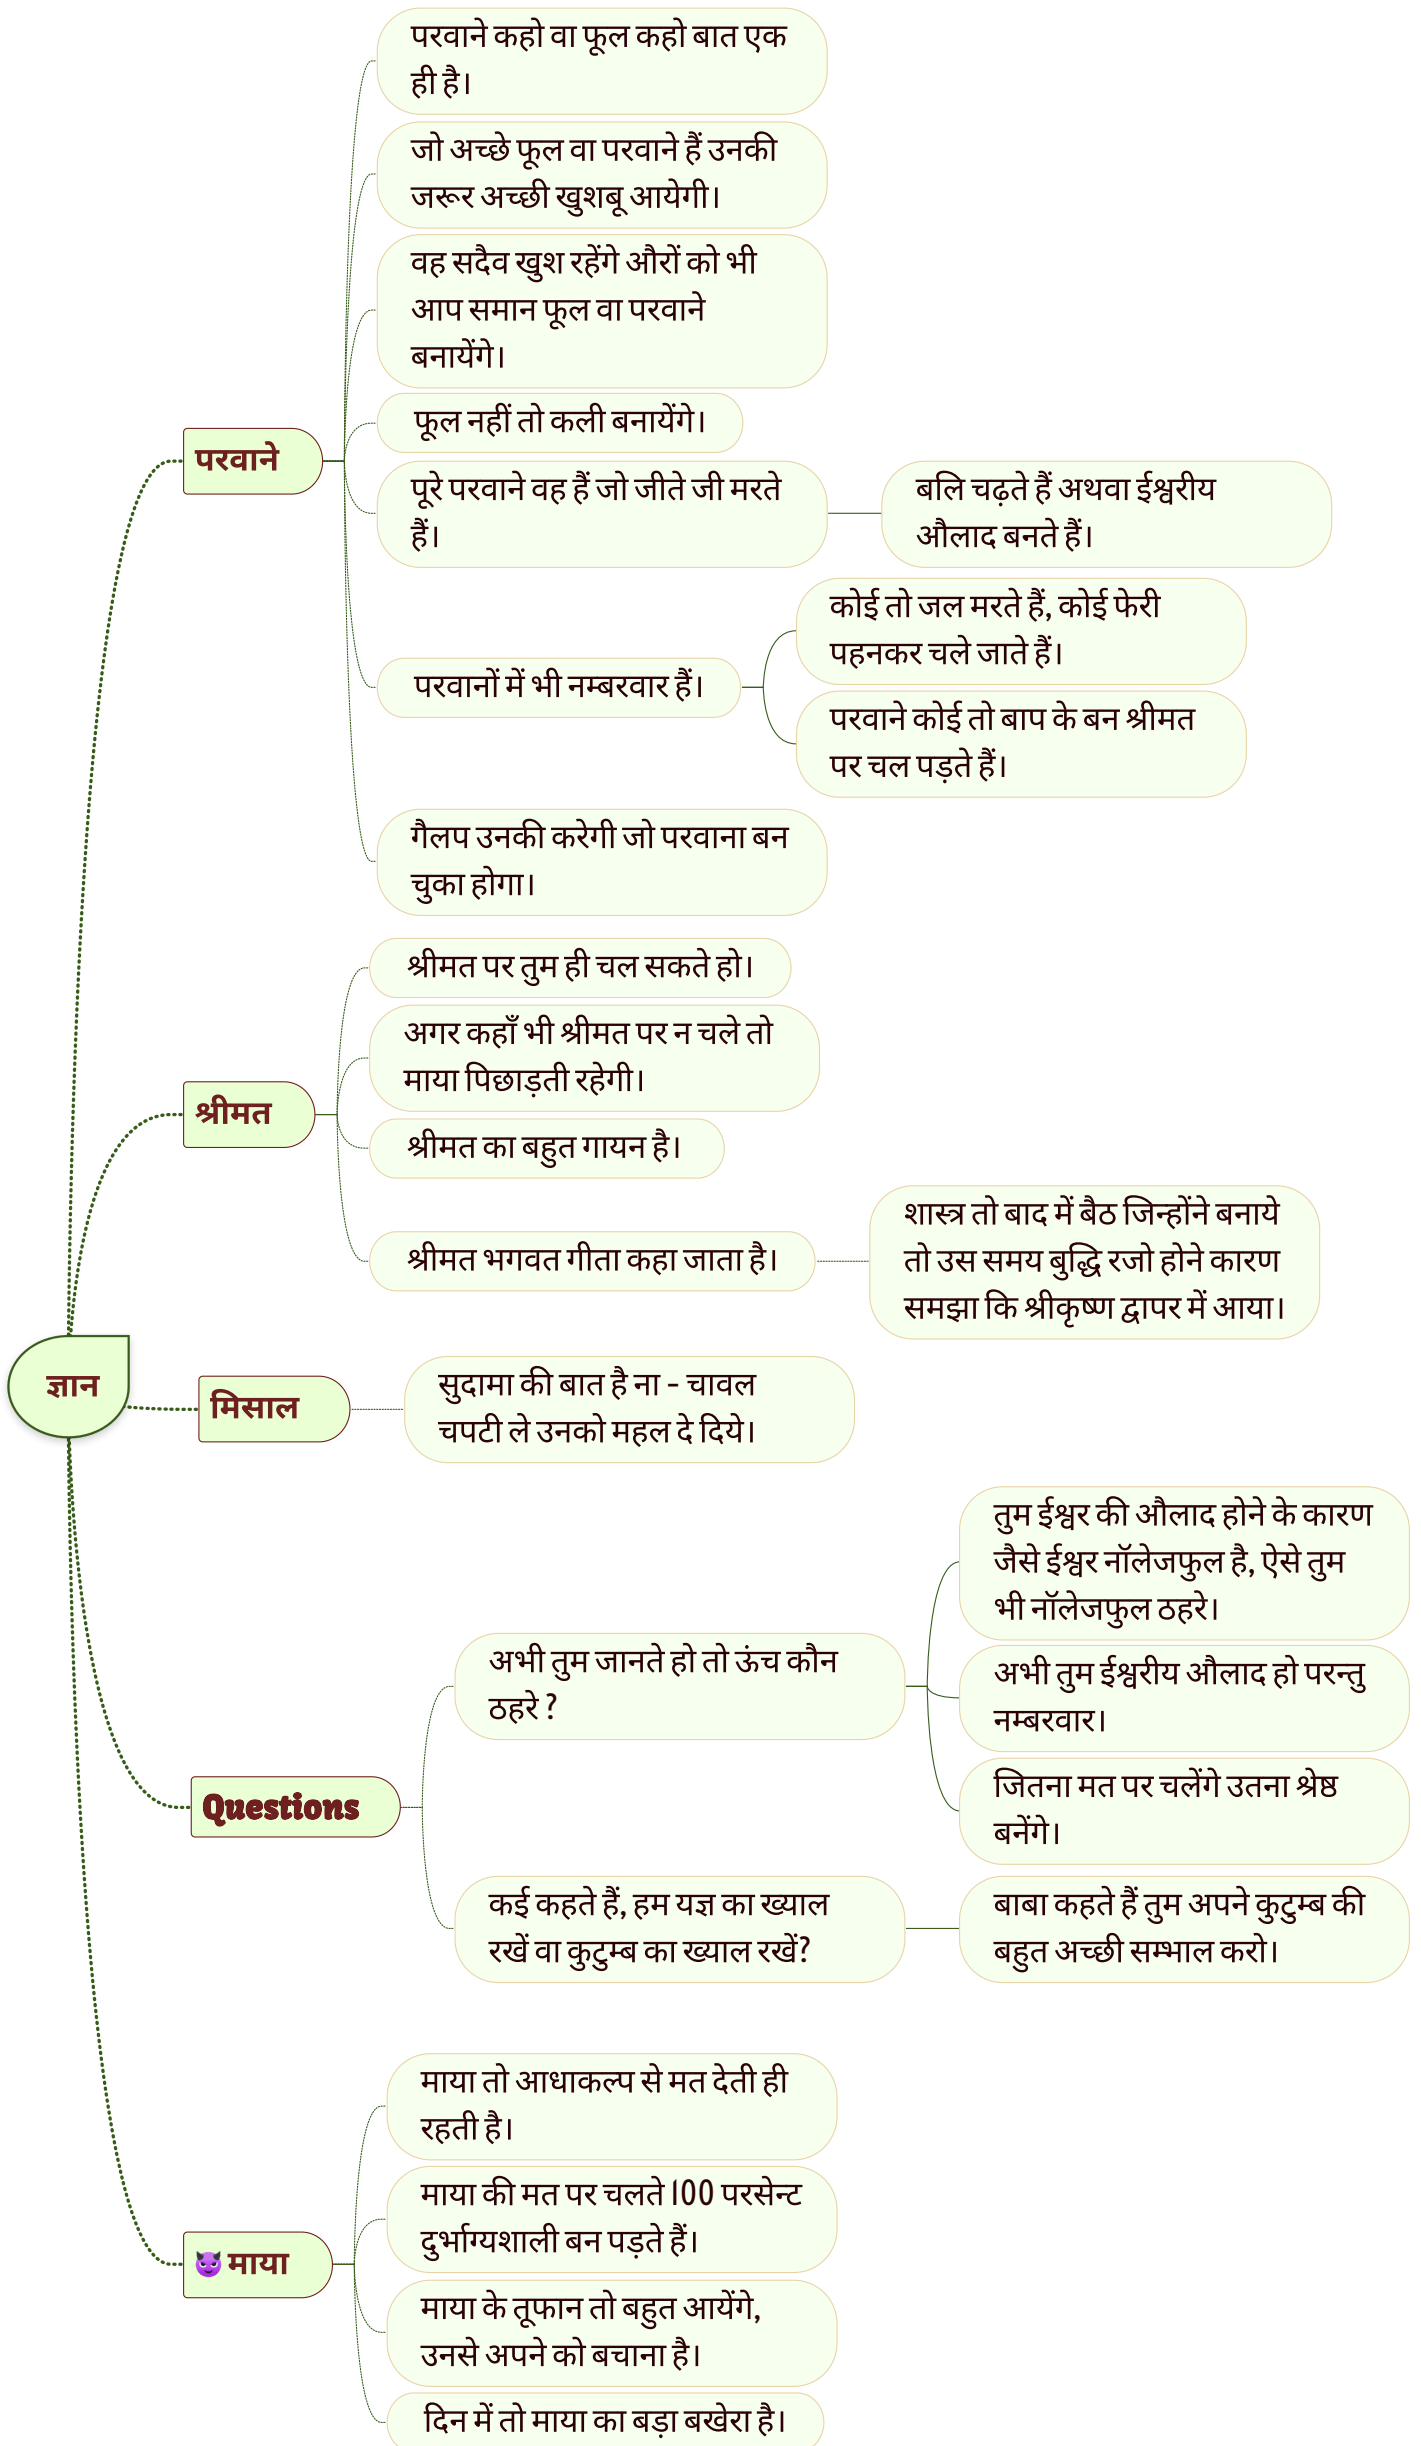 परवाने कहो वा फूल कहो बात एक
ही है।
जो अच्छे फूल वा परवाने हैं उनकी
जरूर अच्छी खुशबू आयेगी।
वह सदैव खुश रहेंगे औरों को भी
आप समान फूल वा परवाने
बनायेंगे।
फूल नहीं तो कली बनायेंगे।
परवाने
पूरे परवाने वह हैं जो जीते जी मरते
हैं।
बलि चढ़ते हैं अथवा ईश्वरीय
औलाद बनते हैं।
परवानों में भी नम्बरवार हैं।
कोई तो जल मरते हैं, कोई फेरी
पहनकर चले जाते हैं।
परवाने कोई तो बाप के बन श्रीमत
पर चल पड़ते हैं।
गैलप उनकी करेगी जो परवाना बन
चुका होगा।
श्रीमत पर तुम ही चल सकते हो।
अगर कहाँ भी श्रीमत पर न चले तो
माया पिछाड़ती रहेगी।
श्रीमत
श्रीमत का बहुत गायन है।
श्रीमत भगवत गीता कहा जाता है।
शास्त्र तो बाद में बैठ जिन्होंने बनाये
तो उस समय बुद्धि रजो होने कारण
समझा कि श्रीकृष्ण द्वापर में आया।
ज्ञान
मिसाल
सुदामा की बात है ना - चावल
चपटी ले उनको महल दे दिये।
Questions
अभी तुम जानते हो तो ऊंच कौन
ठहरे ?
तुम ईश्वर की औलाद होने के कारण
जैसे ईश्वर नॉलेजफुल है, ऐसे तुम
भी नॉलेजफुल ठहरे।
अभी तुम ईश्वरीय औलाद हो परन्तु
नम्बरवार।
जितना मत पर चलेंगे उतना श्रेष्ठ
बनेंगे।
कई कहते हैं, हम यज्ञ का ख्याल
रखें वा कुटुम्ब का ख्याल रखें?
बाबा कहते हैं तुम अपने कुटुम्ब की
बहुत अच्छी सम्भाल करो।
😈 माया
माया तो आधाकल्प से मत देती ही
रहती है।
माया की मत पर चलते 100 परसेन्ट
दुर्भाग्यशाली बन पड़ते हैं।
माया के तूफान तो बहुत आयेंगे,
उनसे अपने को बचाना है।
दिन में तो माया का बड़ा बखेरा है।